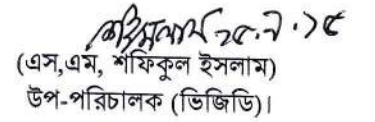 ২৫.৯.১৫
(এস,এম, শফিকুল ইসলাম)
উপ-পরিচালক (ভিজিডি)।